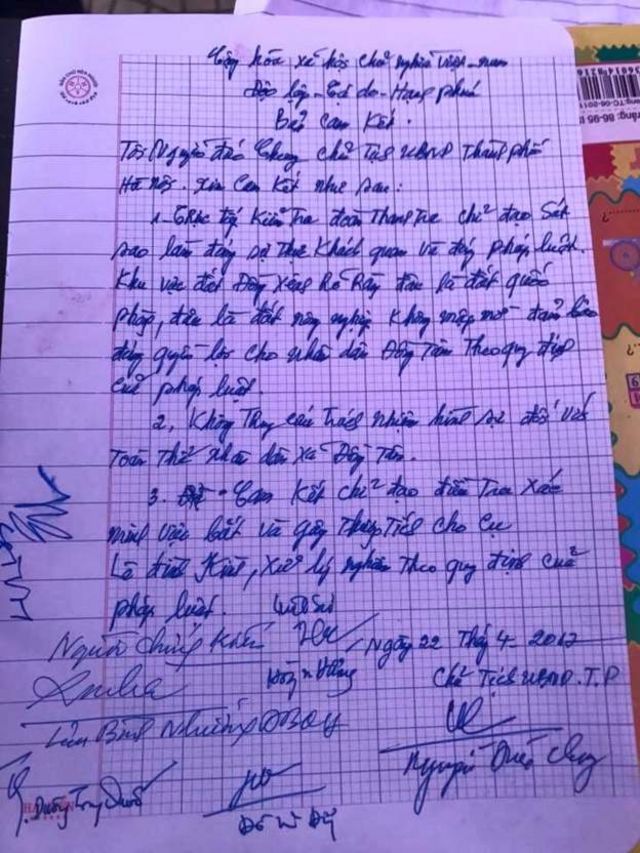 Cộng hòa xã hội chủ nghĩa Việt-nam
Độc lập-Tự do-Hạnh phúc
Bản Cam Kết.
Tôi Nguyễn Đức Chung chủ tịch UBND Thành phố
Hà Nội. xin Cam Kết như sau:
1. Trực tiếp Kiểm Tra đoàn Thanh Tra chỉ đạo Sát
sao làm đúng sự thật Khách quan và đúng pháp luật.
Khu vực đất Đồng Xênh Rõ Ràng đâu là đất quốc
phòng, đâu là đất nông nghiệp Không mập mờ đảm bảo
đúng quyền lợi cho nhân dân Đồng Tâm Theo quy định
của pháp luật.
2, Không Truy cứu Trách nhiệm hình sự đối với
Toàn Thể nhân dân xã Đồng Tâm.
3. Cam Kết chỉ đạo điều Tra Xác
minh việc bắt và gây Thương Tích cho Cụ
Lê đình Kình, Xử lý nghiêm Theo quy định của
pháp luật. Luật Sư
Người chứng kiến
Ngày 22 Tháng 4-2017
Chủ Tịch UBND.T.P
Lưu Bình Nhưỡng ĐBQH
Nguyễn Đức Chung
Dương Trung Quốc